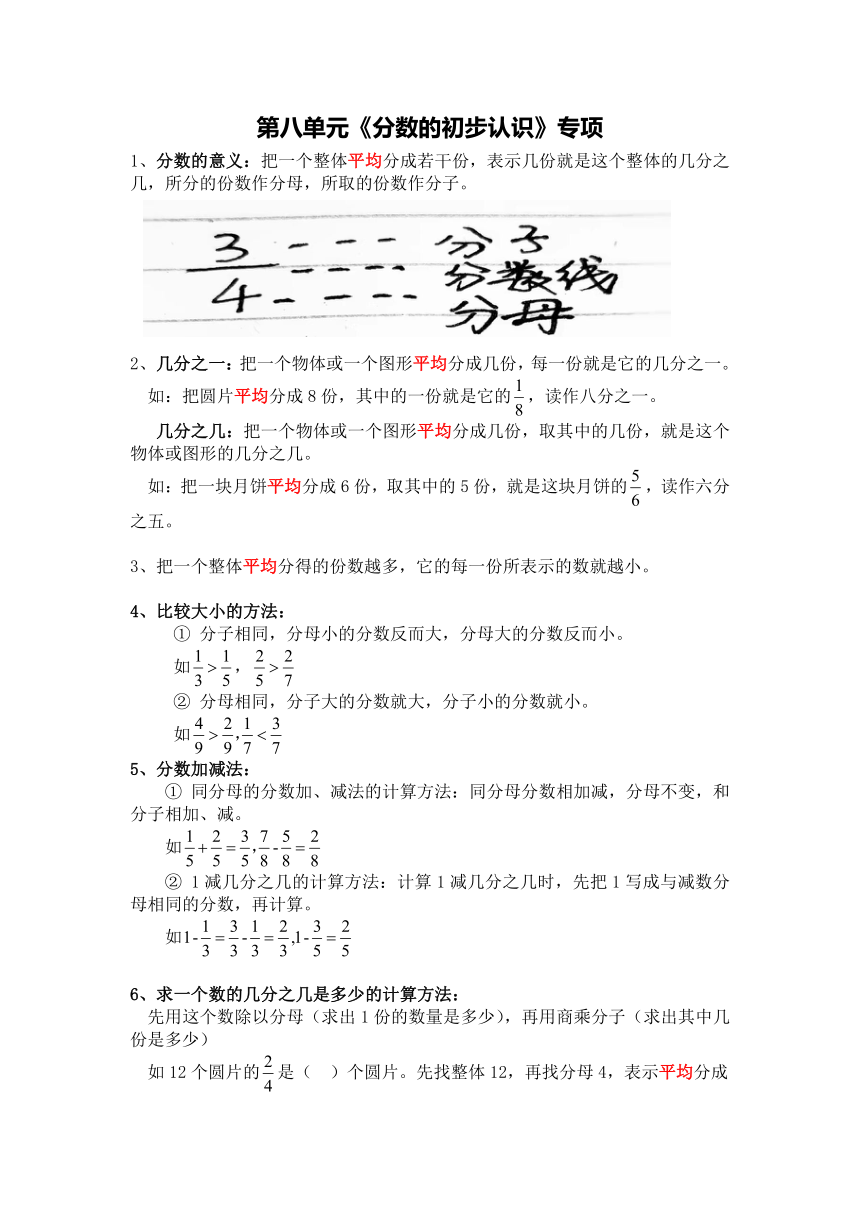 第八单元《分数的初步认识》专项
1、分数的意义：把一个整体平均分成若干份，表示几份就是这个整体的几分之
几，所分的份数作分母，所取的份数作分子。
3 - - - 分子
- - - - 分数线
4 - - - - 分母
2、几分之一：把一个物体或一个图形平均分成几份，每一份就是它的几分之一。
如：把圆片平均分成8份，其中的一份就是它的1/8，读作八分之一。
几分之几：把一个物体或一个图形平均分成几份，取其中的几份，就是这个
物体或图形的几分之几。
如：把一块月饼平均分成6份，取其中的5份，就是这块月饼的5/6，读作六分
之五。
3、把一个整体平均分得的份数越多，它的每一份所表示的数就越小。
4、比较大小的方法：
① 分子相同，分母小的分数反而大，分母大的分数反而小。
如1/3>1/5，2/5>2/7
② 分母相同，分子大的分数就大，分子小的分数就小。
如4/9>2/9,1/7<3/7
5、分数加减法：
① 同分母的分数加、减法的计算方法：同分母分数相加减，分母不变，和
分子相加、减。
如1/5+2/5=3/5,7/8-5/8=2/8
② 1减几分之几的计算方法：计算1减几分之几时，先把1写成与减数分
母相同的分数，再计算。
如1-1/3=3/3-1/3=2/3,1-3/5=2/5
6、求一个数的几分之几是多少的计算方法：
先用这个数除以分母（求出1份的数量是多少），再用商乘分子（求出其中几
份是多少）
如12个圆片的2/4是（ ）个圆片。先找整体12，再找分母4，表示平均分成